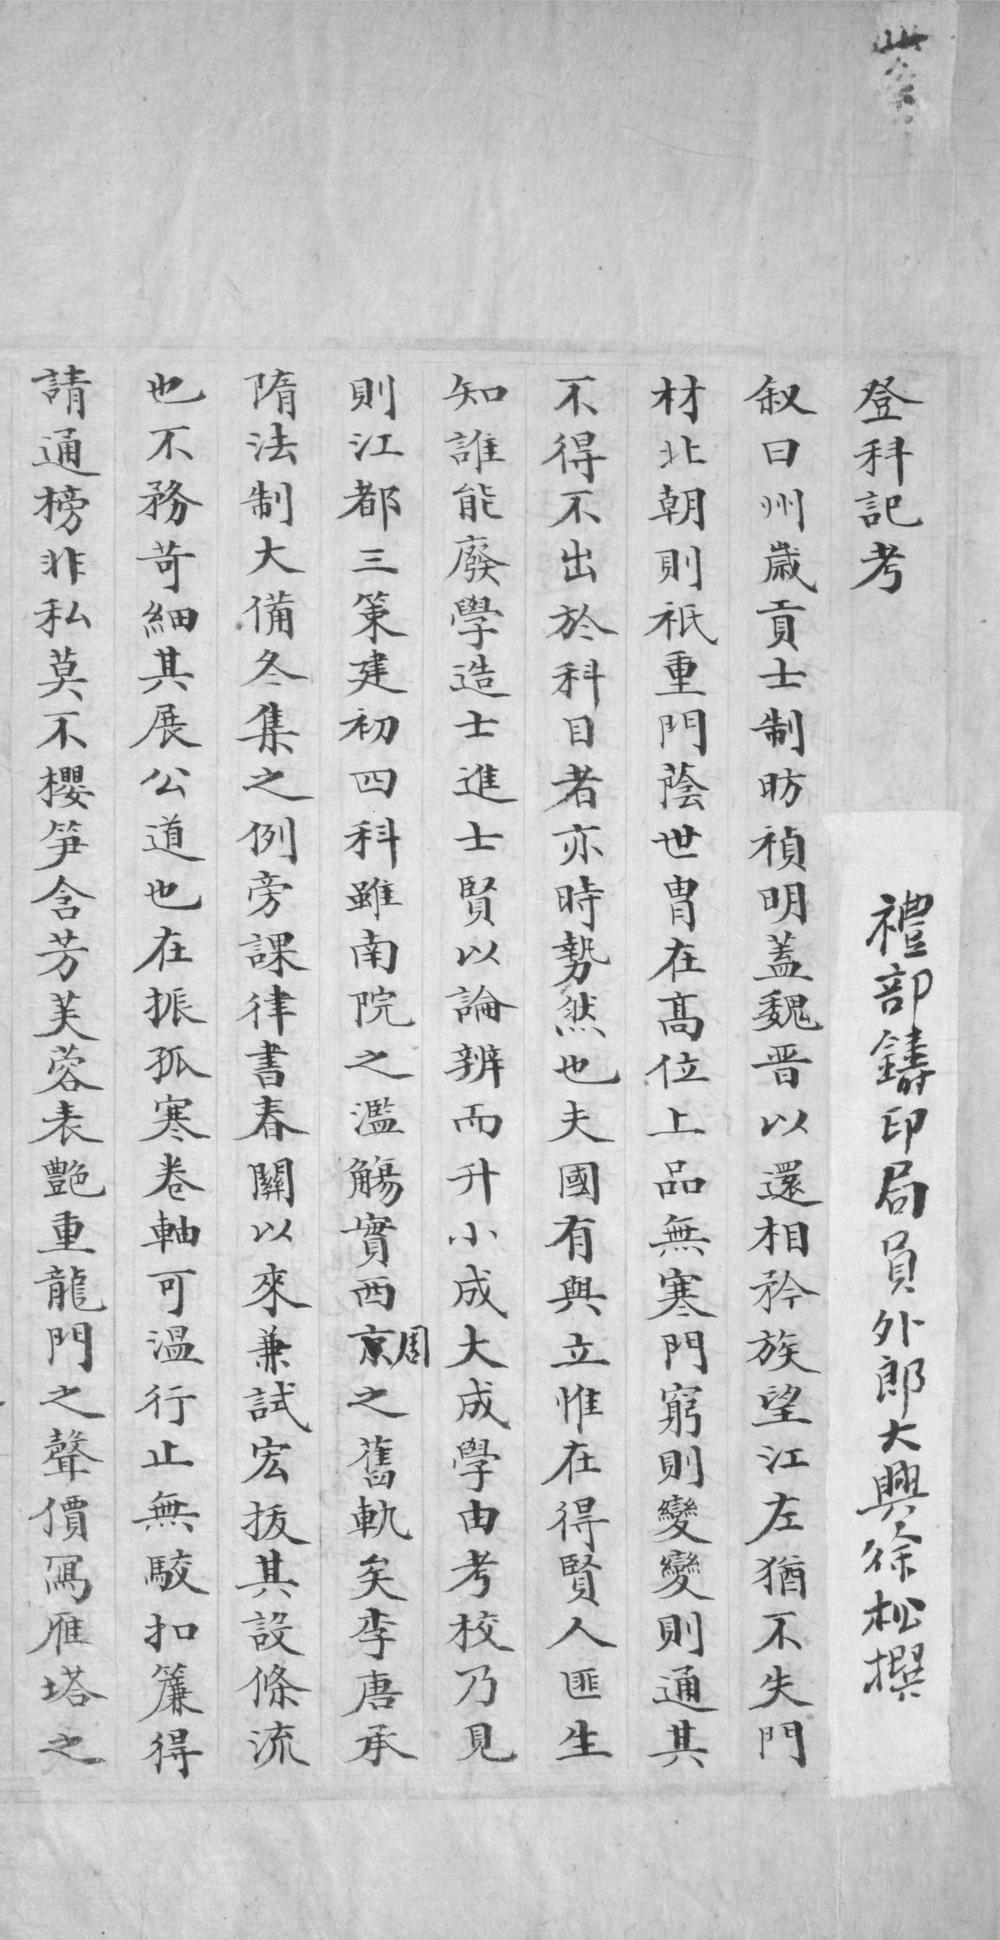 登科記考
禮部鑄印局員外郎大興徐松撰
叙曰州歲貢士制昉禎明蓋魏晋以還相矜族望江左猶不失門
材北朝則祇重門蔭世胄在高位上品無寒門窮則變變則通其
不得不出於科目者亦時勢然也夫國有與立惟在得賢人匪生
知誰能廢學造士進士賢以論辨而升小成大成學由考校乃見
則江都三策建初四科雖南院之濫觴實西京周之舊軌矣李唐承
隋法制大備冬集之例旁課律書春關以來兼試宏拔其設條流
也不務苛細其展公道也在振孤寒卷軸可溫行止無駮扣簾得
請通榜非私莫不櫻笋含芳芙蓉表艷重龍門之聲價寫雁塔之